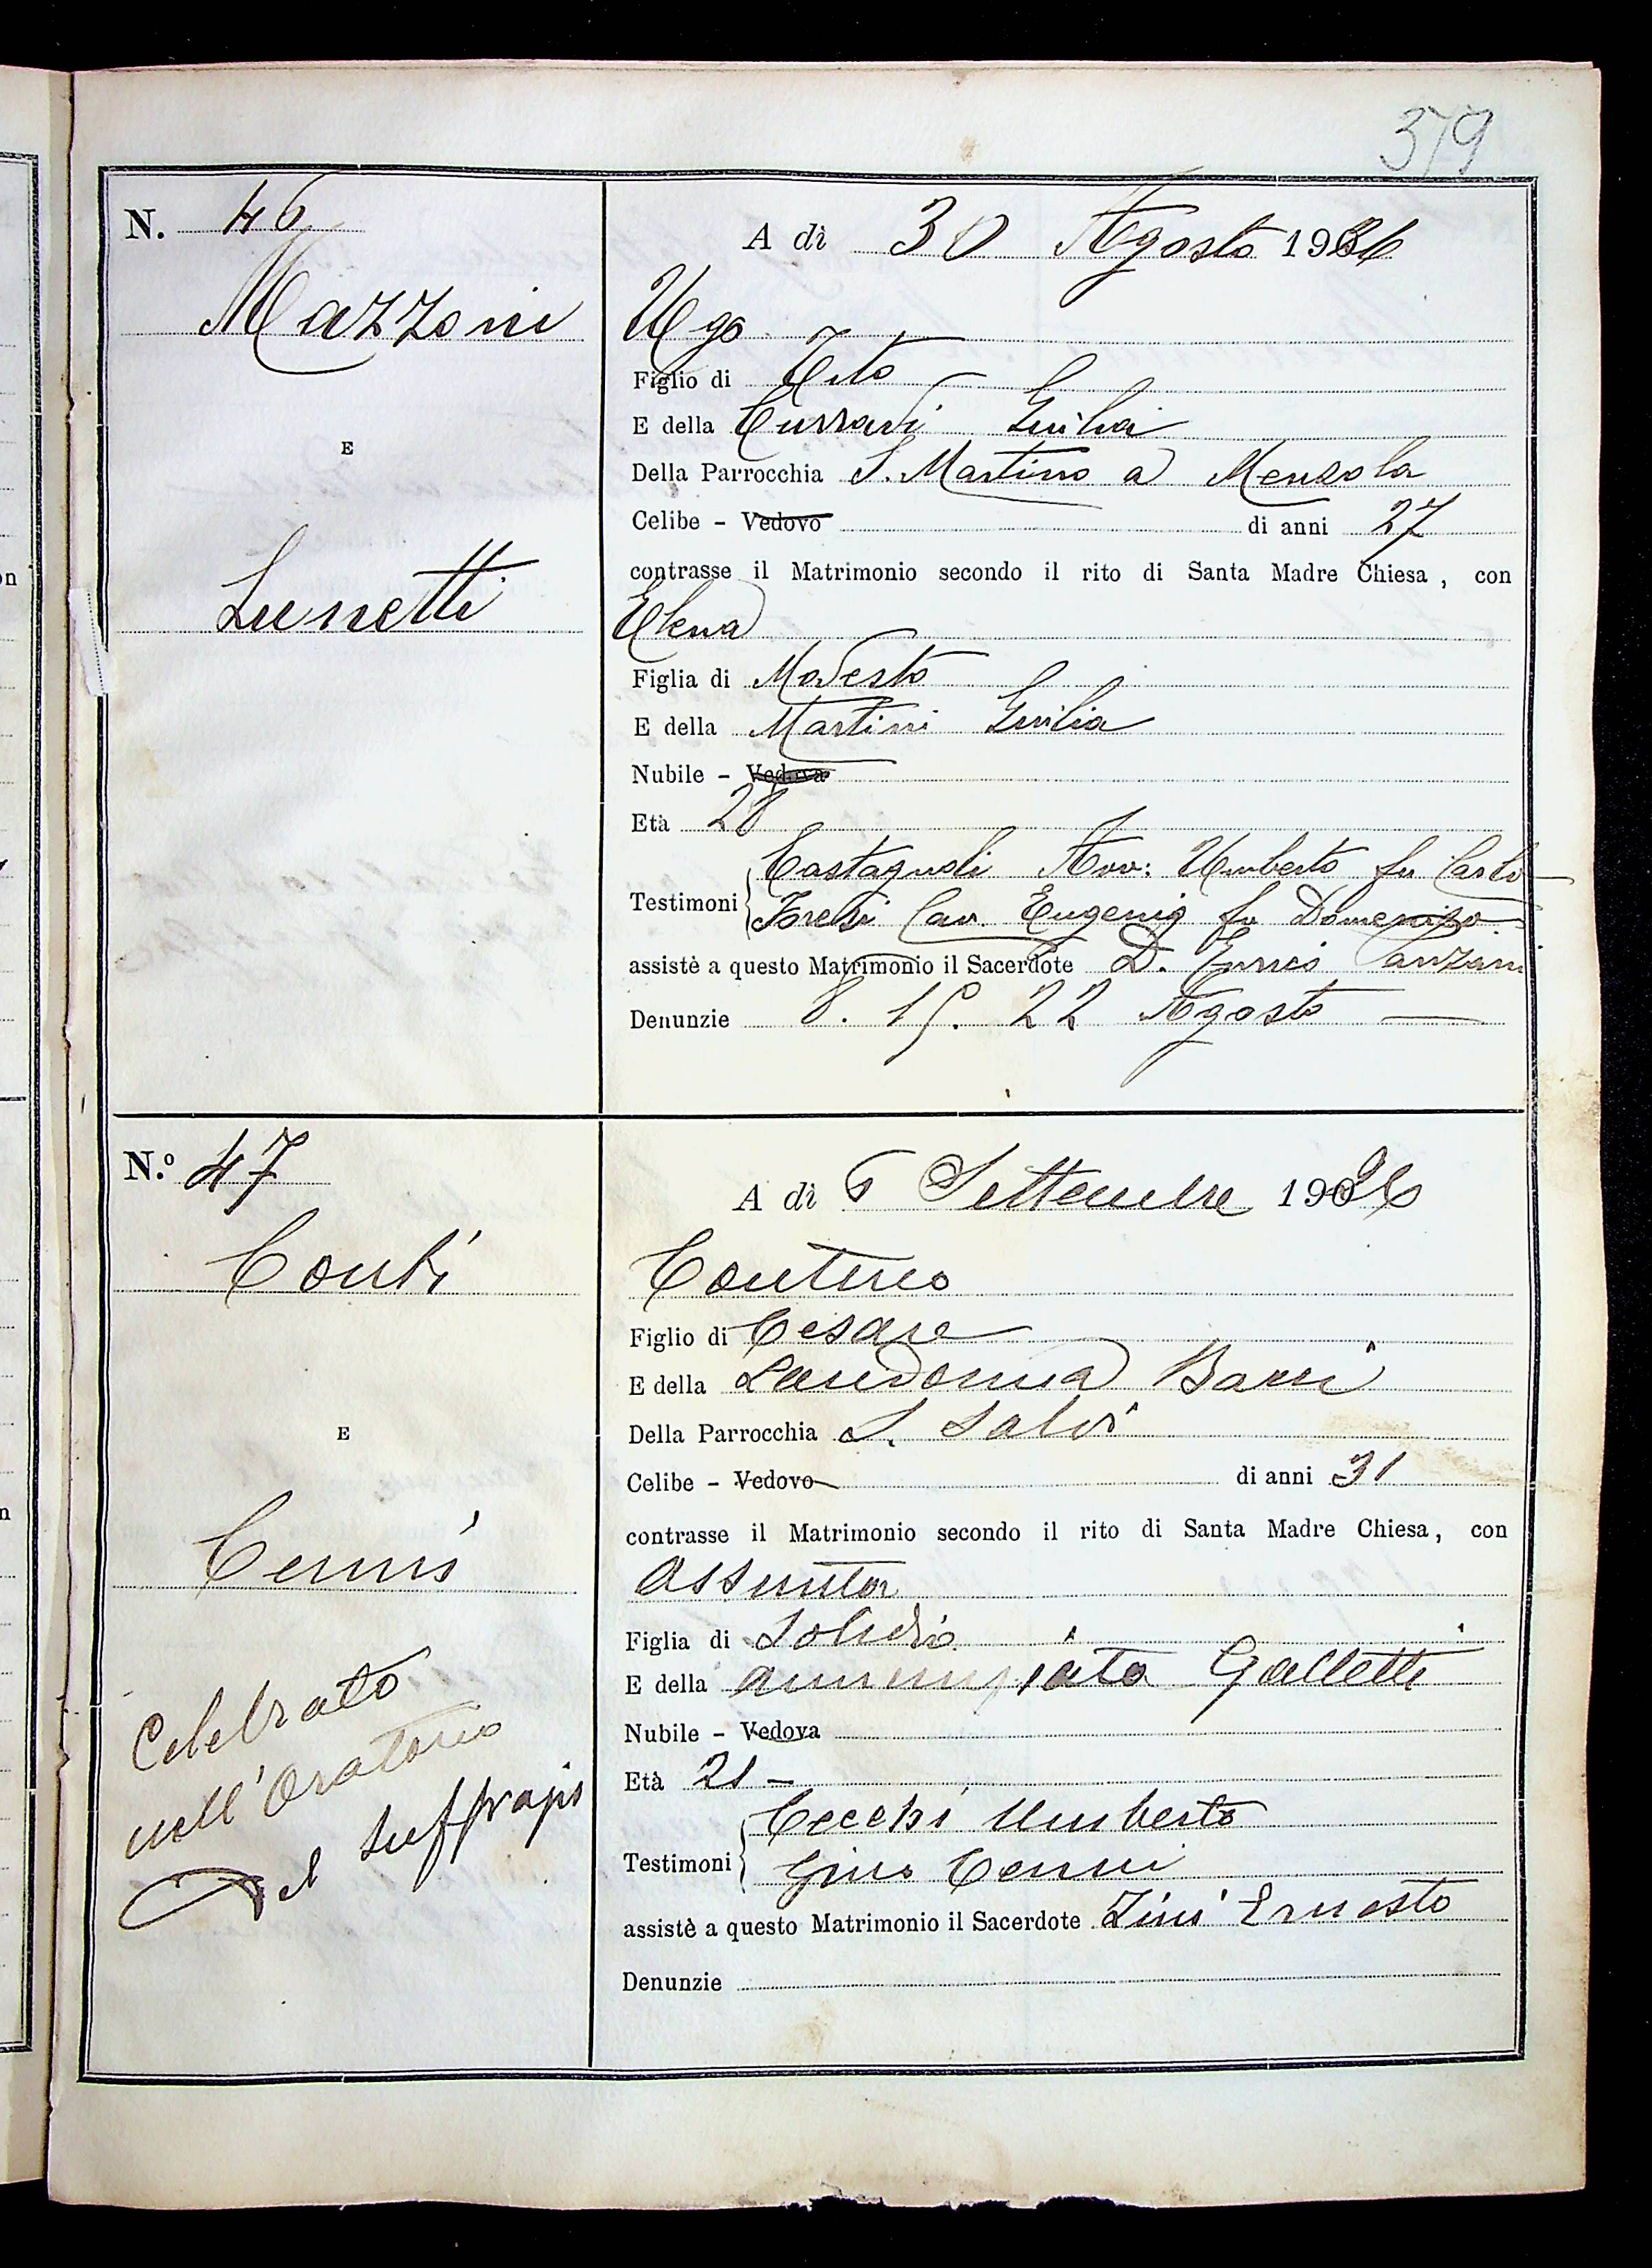 379
N. 46
A dì 30 Agosto 1936
Mazzoni
Ugo
Figlio di Tito
E della Curradi Giulia
E
Della Parrocchia S. Martino a Mensola
Celibe - Vedovo di anni 27
contrasse il Matrimonio secondo il rito di Santa Madre Chiesa, con
Lunetti
Elena
Figlia di Modesto
E della Martini Giulia
Nubile - Vedova
Età 28
Castagnoli Avv: Umberto fu Carlo
Testimoni
Cav. Eugenio fu Domenico
assistè a questo Matrimonio il Sacerdote D. Enrico
Denunzie 8. 15. 22 Agosto
N.º 47
A dì 6 Settembre 1936
Conti
Figlio di Cesare
E della Laudomia
E
Della Parrocchia S. Salvi
Celibe - Vedovo di anni 31
contrasse il Matrimonio secondo il rito di Santa Madre Chiesa, con
Cenni
Assunta
Figlia di
E della Annunziata Galletti
Nubile - Vedova
Età 21 -
Celebrato
nell'Oratorio
del Suffragio
Cecchi Umberto
Testimoni
Gino Cenni
assistè a questo Matrimonio il Sacerdote Zini Ernesto
Denunzie